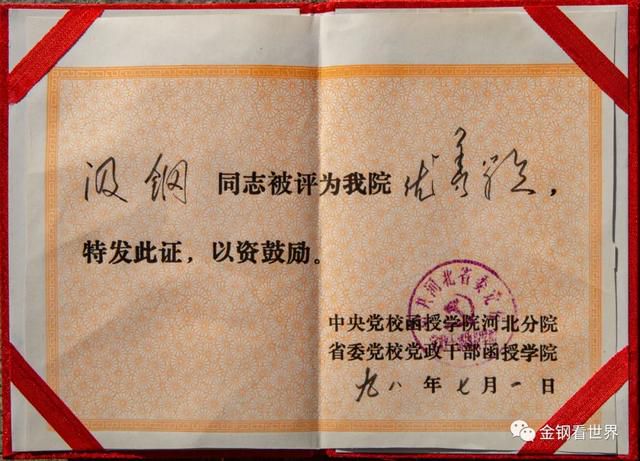 汲钢 同志被评为我院 优秀，
特发此证，以资鼓励。
共河北省委党
中央党校函授学院河北分院
省委党校党政干部函授学院
九八年七月一日
金钢看世界